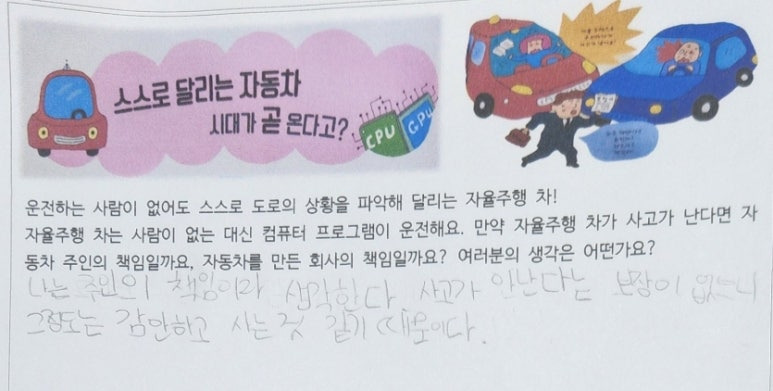 스스로 달리는 자동차
시대가 곧 온다고?
CPU GPU
운전하는 사람이 없어도 스스로 도로의 상황을 파악해 달리는 자율주행 차!
자율주행 차는 사람이 없는 대신 컴퓨터 프로그램이 운전해요. 만약 자율주행 차가 사고가 난다면 자
동차 주인의 책임일까요, 자동차를 만든 회사의 책임일까요? 여러분의 생각은 어떤가요?
나는 주인의 책임이라 생각한다 사고가 안난다는 보장이 없으니
그정도는 감안하고 사는 것 같기 때문이다.